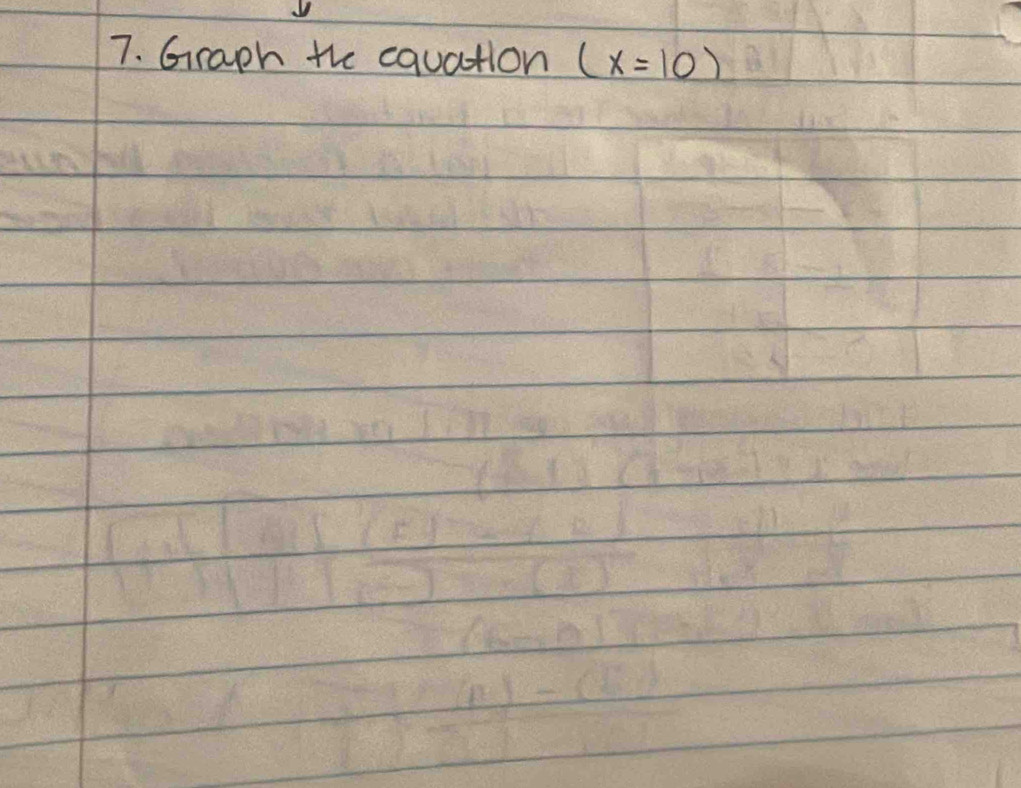 7. Graph the equation (x=10)